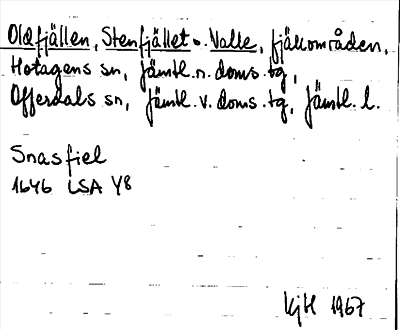 Oldfjällen, Stenfjället o. Valle, fjällområden,
Hotagens sn, Jämtl. n. doms. tg,
Offerdals sn, Jämtl. v. doms. tg, Jämtl. l.
Snasfiel
1646 LSA Y8
KjH 1967